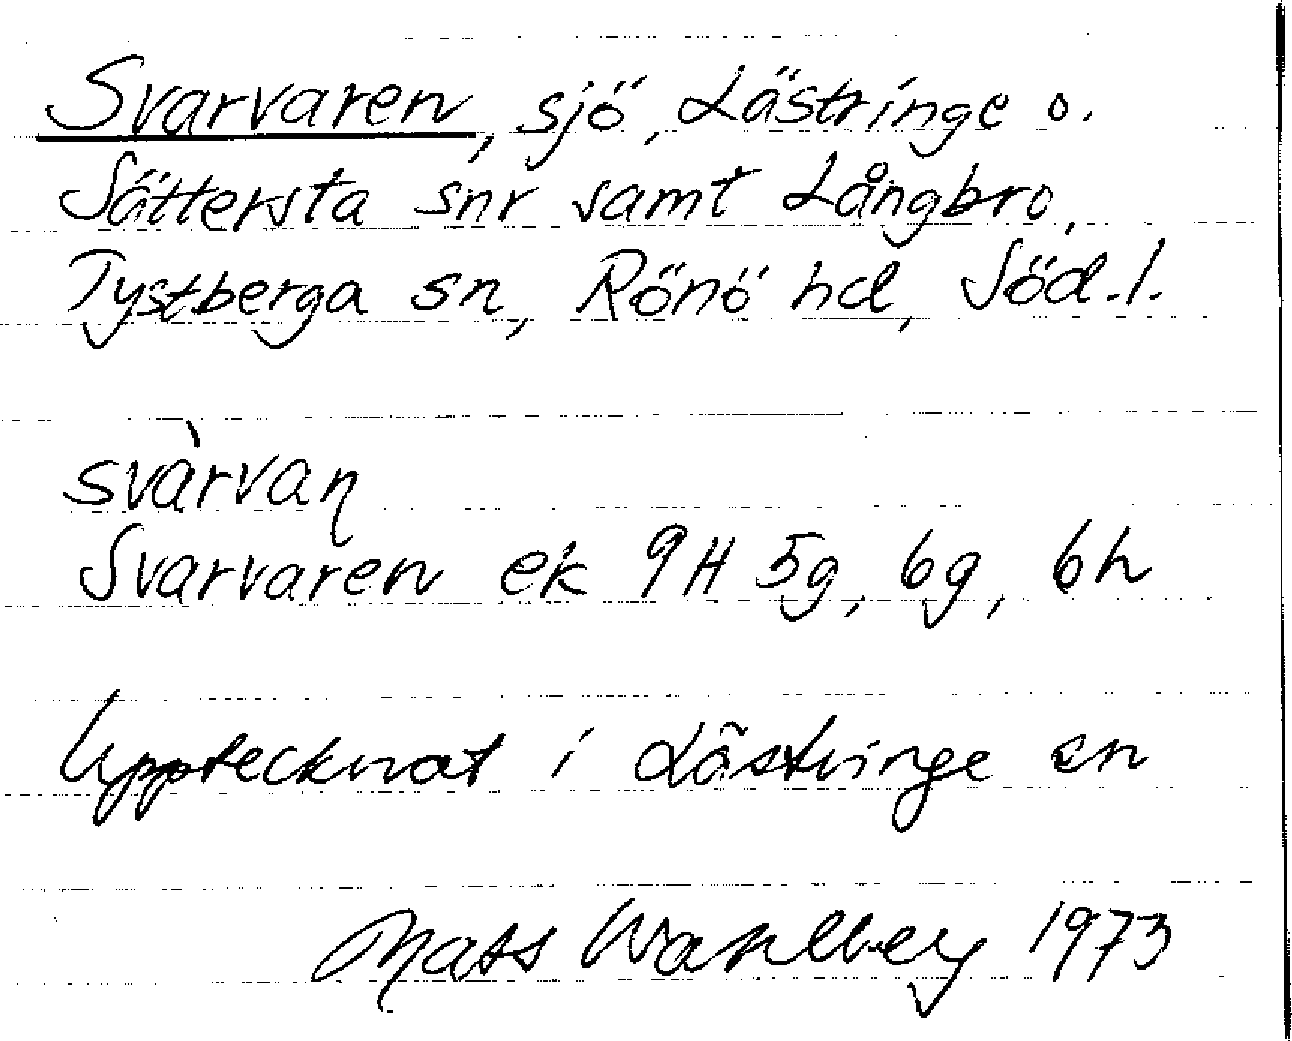 Svarvaren, sjö, Lästringe o.
Sättersta snr samt Långbro,
Tystberga sn, Rönö hd, Söd.l.
svàrvaɳ
Svarvaren ek 9H 5g, 6g, 6h
Upptecknat i Lästringe sn
Mats Wahlberg 1973